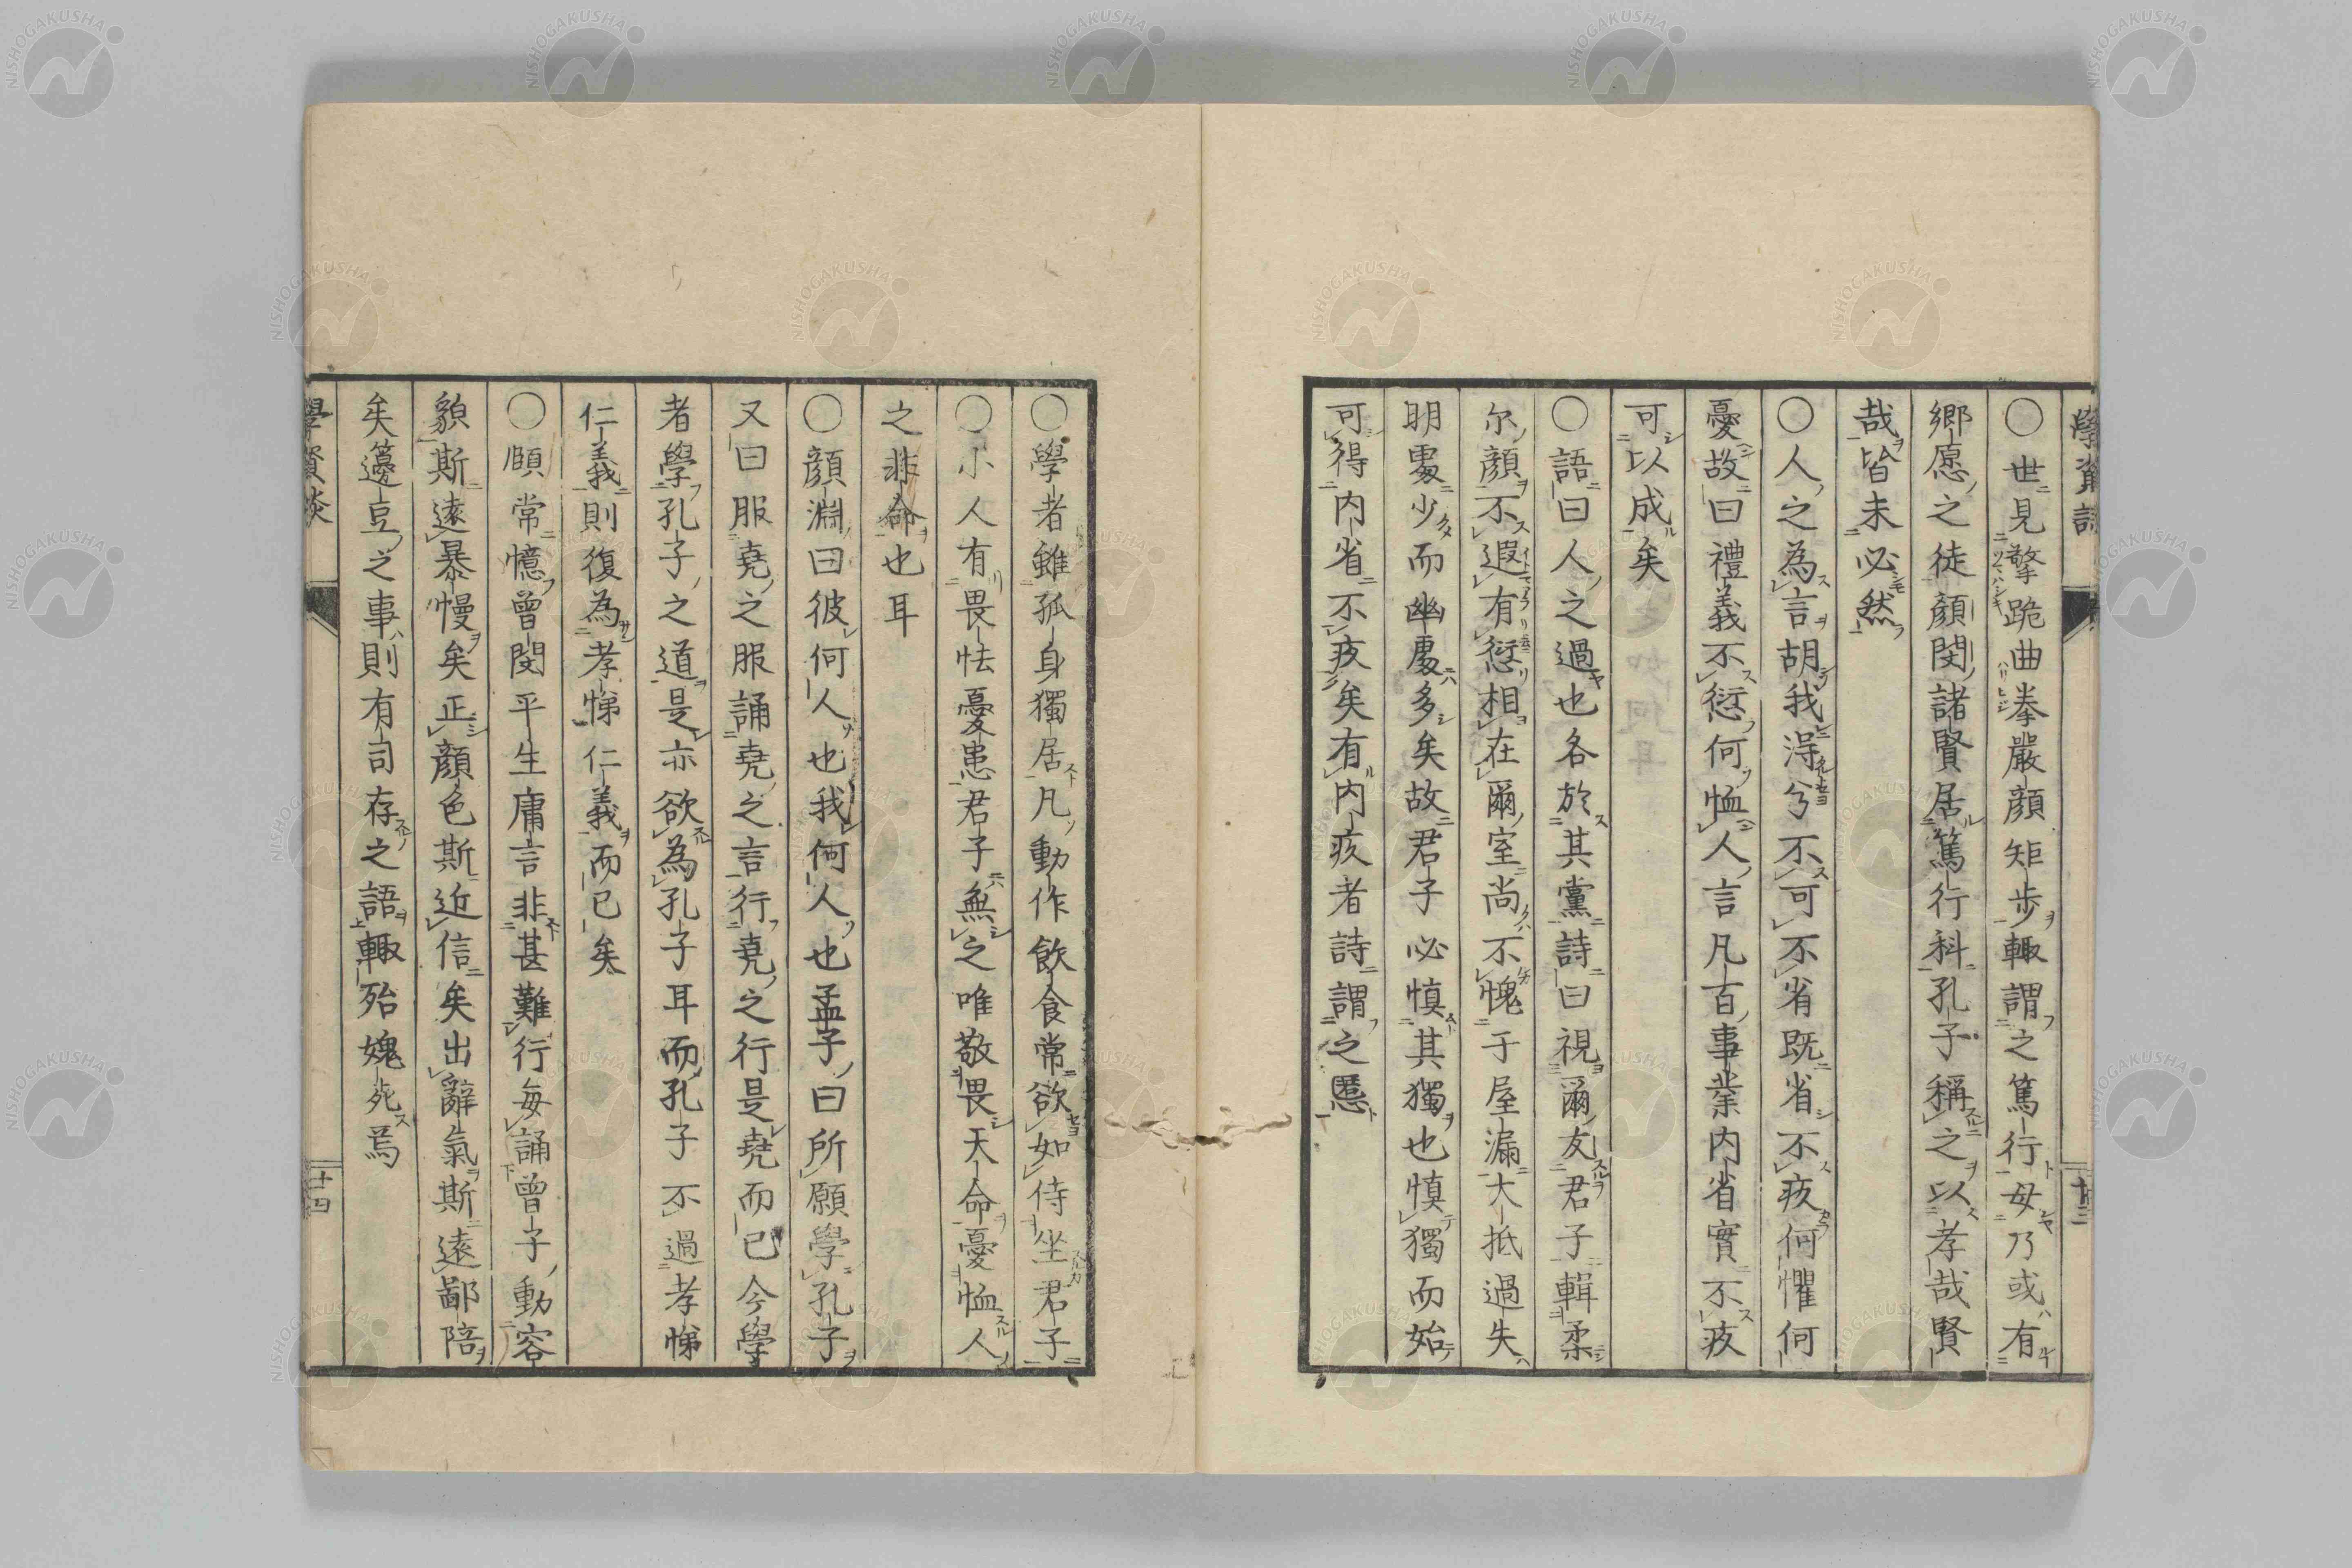 ○世見擎跪曲拳嚴顔矩歩輙謂之篤行毋乃或有
鄉愿之徒顔閔諸賢居篤行科孔子稱之以孝哉賢
哉皆未必然
○人之為言胡我淂兮不可不省既省不疚何懼何
憂故曰禮義不愆何恤人言凡百事業内省實不疚
可以成矣
○語曰人之過也各於其黨詩曰視爾友君子輯柔
尓顔不遐有愆相在爾室尚不愧于屋漏大抵過失
明處少而幽處多矣故君子必慎其獨也慎獨而始
可得内省不疚矣有内疚者詩謂之慝
○學者雖孤身獨居凡動作飲食常欲如侍坐君子
○小人有畏怯憂患君子無之唯敬畏天命憂恤人
之非命也耳
○顔淵曰彼何人也我何人也孟子曰所願學孔子
又曰服堯之服誦堯之言行堯之行是堯而已今學
者學孔子之道是亦欲為孔子耳而孔子不過孝悌
仁義則復為孝悌仁義而已矣
○頤常憶曾閔平生庸言非甚難行毎誦曾子動容
貌斯遠暴慢矣正顔色斯近信矣出辭氣斯遠鄙陪
矣籩豆之事則有司存之語輙殆媿死焉
學資談
十四